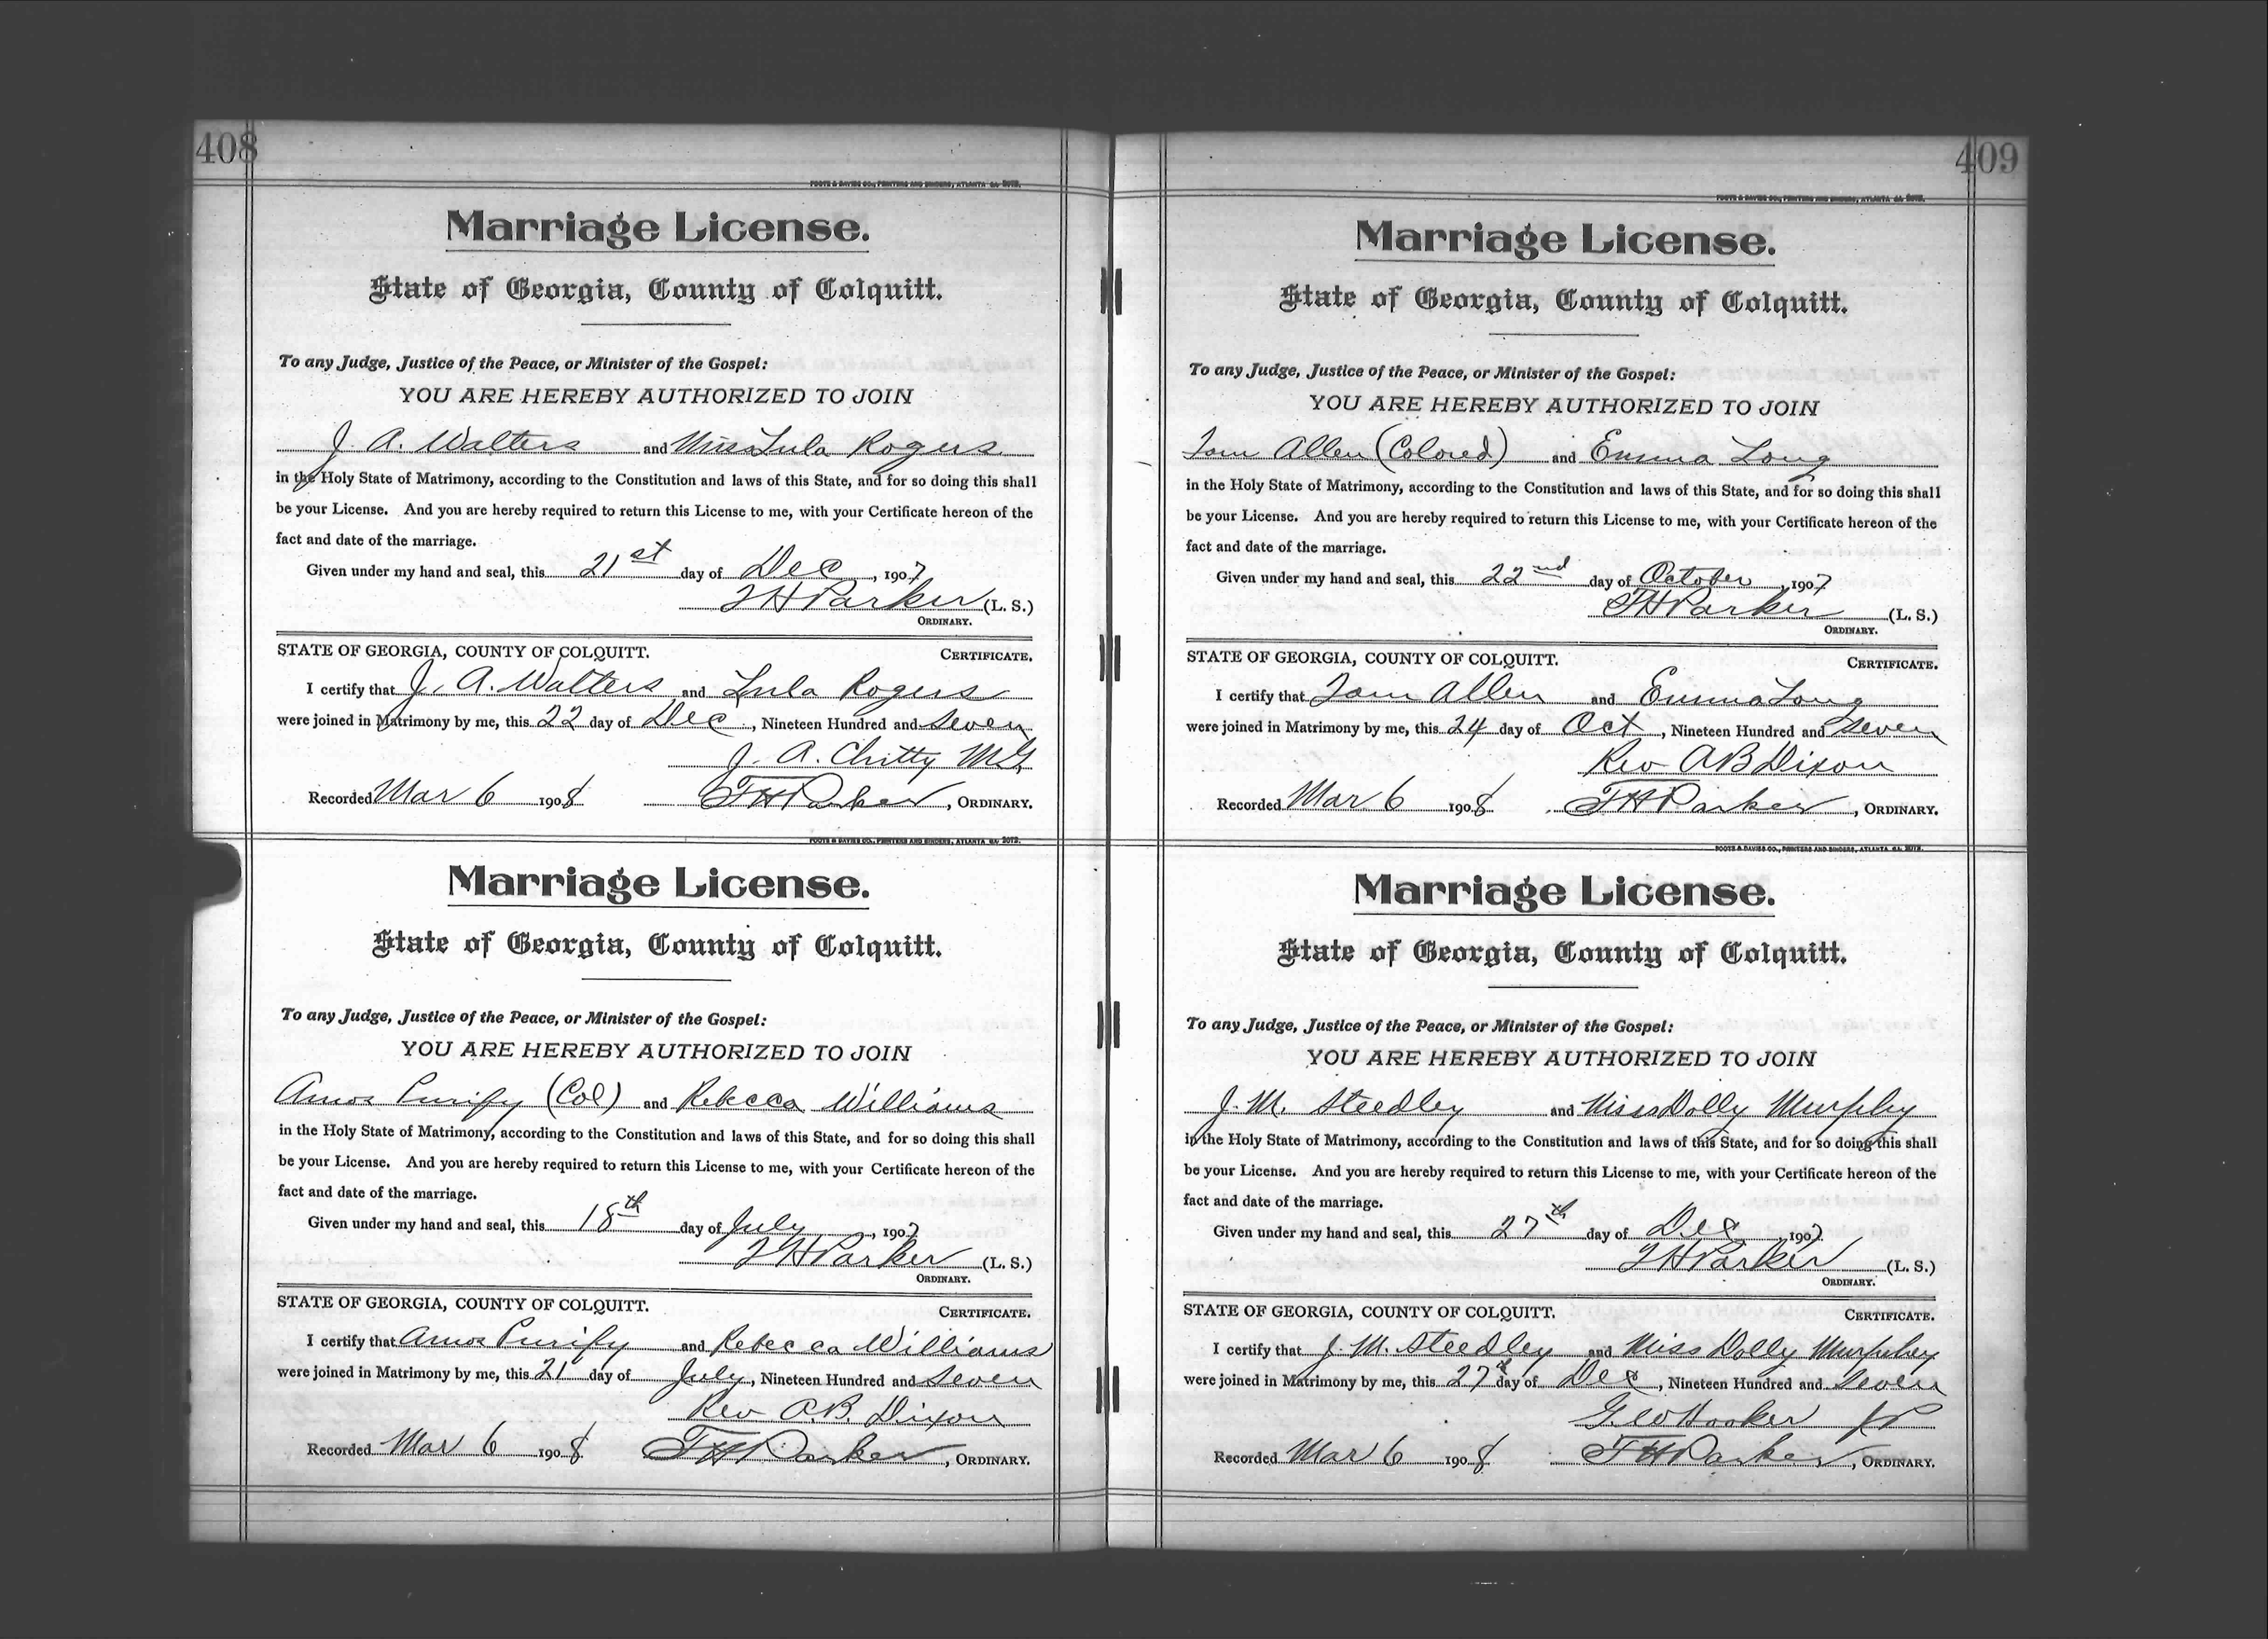 408
FOOTE & DAVIES CO., PRINTERS AND BINDERS, ATLANTA GA. 2072.
Marriage License.
State of Georgia, County of Colquitt.
To any Judge, Justice of the Peace, or Minister of the Gospel:
YOU ARE HEREBY AUTHORIZED TO JOIN
J. A. Walters and Miss Lula Rogers
in the Holy State of Matrimony, according to the Constitution and laws of this State, and for so doing this shall
be your License. And you are hereby required to return this License to me, with your Certificate hereon of the
fact and date of the marriage.
Given under my hand and seal, this 21st day of Dec, 1907
T H Parker (L. S.)
ORDINARY.
STATE OF GEORGIA, COUNTY OF COLQUITT. CERTIFICATE.
I certify that J. A. Walters and Lula Rogers
were joined in Matrimony by me, this 22 day of Dec, Nineteen Hundred and Seven
J. A. Chitty M.G.
Recorded Mar 6 1908 T H Parker, ORDINARY.
FOOTE & DAVIES CO., PRINTERS AND BINDERS, ATLANTA GA. 2072.
Marriage License.
State of Georgia, County of Colquitt.
To any Judge, Justice of the Peace, or Minister of the Gospel:
YOU ARE HEREBY AUTHORIZED TO JOIN
Amos Purify (Col) and Rebecca Williams
in the Holy State of Matrimony, according to the Constitution and laws of this State, and for so doing this shall
be your License. And you are hereby required to return this License to me, with your Certificate hereon of the
fact and date of the marriage.
Given under my hand and seal, this 18th day of July, 1907
T H Parker (L. S.)
ORDINARY.
STATE OF GEORGIA, COUNTY OF COLQUITT. CERTIFICATE.
I certify that Amos Purify and Rebecca Williams
were joined in Matrimony by me, this 21 day of July, Nineteen Hundred and Seven
Rev A.B. Dixon
Recorded Mar 6 1908 T H Parker, ORDINARY.
409
FOOTE & DAVIES CO., PRINTERS AND BINDERS, ATLANTA GA. 2072.
Marriage License.
State of Georgia, County of Colquitt.
To any Judge, Justice of the Peace, or Minister of the Gospel:
YOU ARE HEREBY AUTHORIZED TO JOIN
Tom Allen (Colored) and Emma Long
in the Holy State of Matrimony, according to the Constitution and laws of this State, and for so doing this shall
be your License. And you are hereby required to return this License to me, with your Certificate hereon of the
fact and date of the marriage.
Given under my hand and seal, this 22nd day of October, 1907
T H Parker (L. S.)
ORDINARY.
STATE OF GEORGIA, COUNTY OF COLQUITT. CERTIFICATE.
I certify that Tom Allen and Emma Long
were joined in Matrimony by me, this 24 day of Oct, Nineteen Hundred and Seven
Rev A B Dixon
Recorded Mar 6 1908 T H Parker, ORDINARY.
FOOTE & DAVIES CO., PRINTERS AND BINDERS, ATLANTA GA. 2072.
Marriage License.
State of Georgia, County of Colquitt.
To any Judge, Justice of the Peace, or Minister of the Gospel:
YOU ARE HEREBY AUTHORIZED TO JOIN
J. M. Steedley and Miss Dolly Murphey
in the Holy State of Matrimony, according to the Constitution and laws of this State, and for so doing this shall
be your License. And you are hereby required to return this License to me, with your Certificate hereon of the
fact and date of the marriage.
Given under my hand and seal, this 27th day of Dec, 1907
T H Parker (L. S.)
ORDINARY.
STATE OF GEORGIA, COUNTY OF COLQUITT. CERTIFICATE.
I certify that J. M. Steedley and Miss Dolly Murphey
were joined in Matrimony by me, this 27th day of Dec, Nineteen Hundred and Seven
G. W Hooker J P
Recorded Mar 6 1908 T H Parker, ORDINARY.